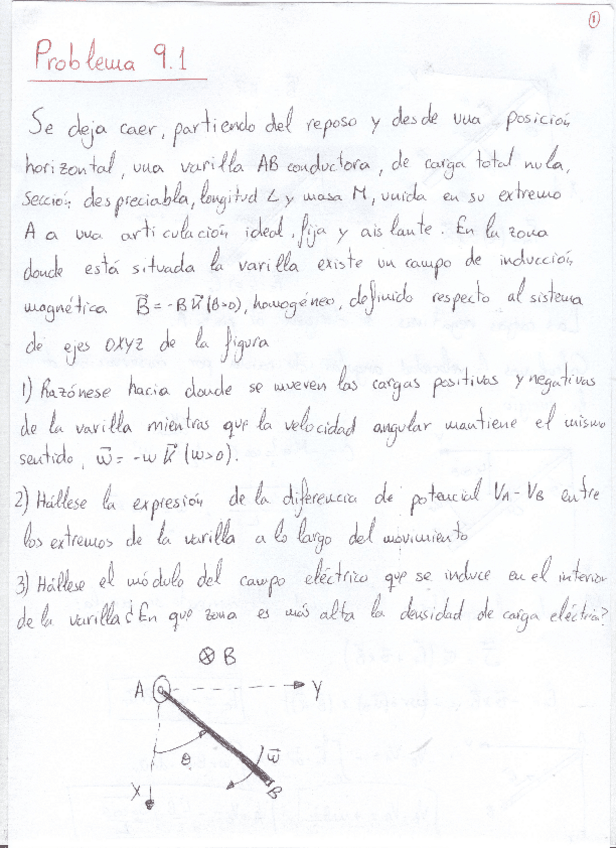 ①
Problema 9.1
Se deja caer, partiendo del reposo y desde una posición
horizontal, una varilla AB conductora, de carga total nula,
sección despreciabla, longitud L y masa M, unida en su extremo
A a una articulación ideal, fija y aislante. En la zona
donde está situada la varilla existe un campo de inducción
magnética B⃗ = -B K⃗ (B>0), homogéneo, definido respecto al sistema
de ejes OXYZ de la figura
1) Razónese hacia donde se mueven las cargas positivas y negativas
de la varilla mientras que la velocidad angular mantiene el mismo
sentido, ω⃗ = -ω K⃗ (ω>0).
2) Hállese la expresión de la diferencia de potencial VA - VB entre
los extremos de la varilla a lo largo del movimiento
3) Hállese el módulo del campo eléctrico que se induce en el interior
de la varilla ¿En que zona es más alta la densidad de carga eléctria?
⊗ B
A
Y
θ
ω⃗
X
B